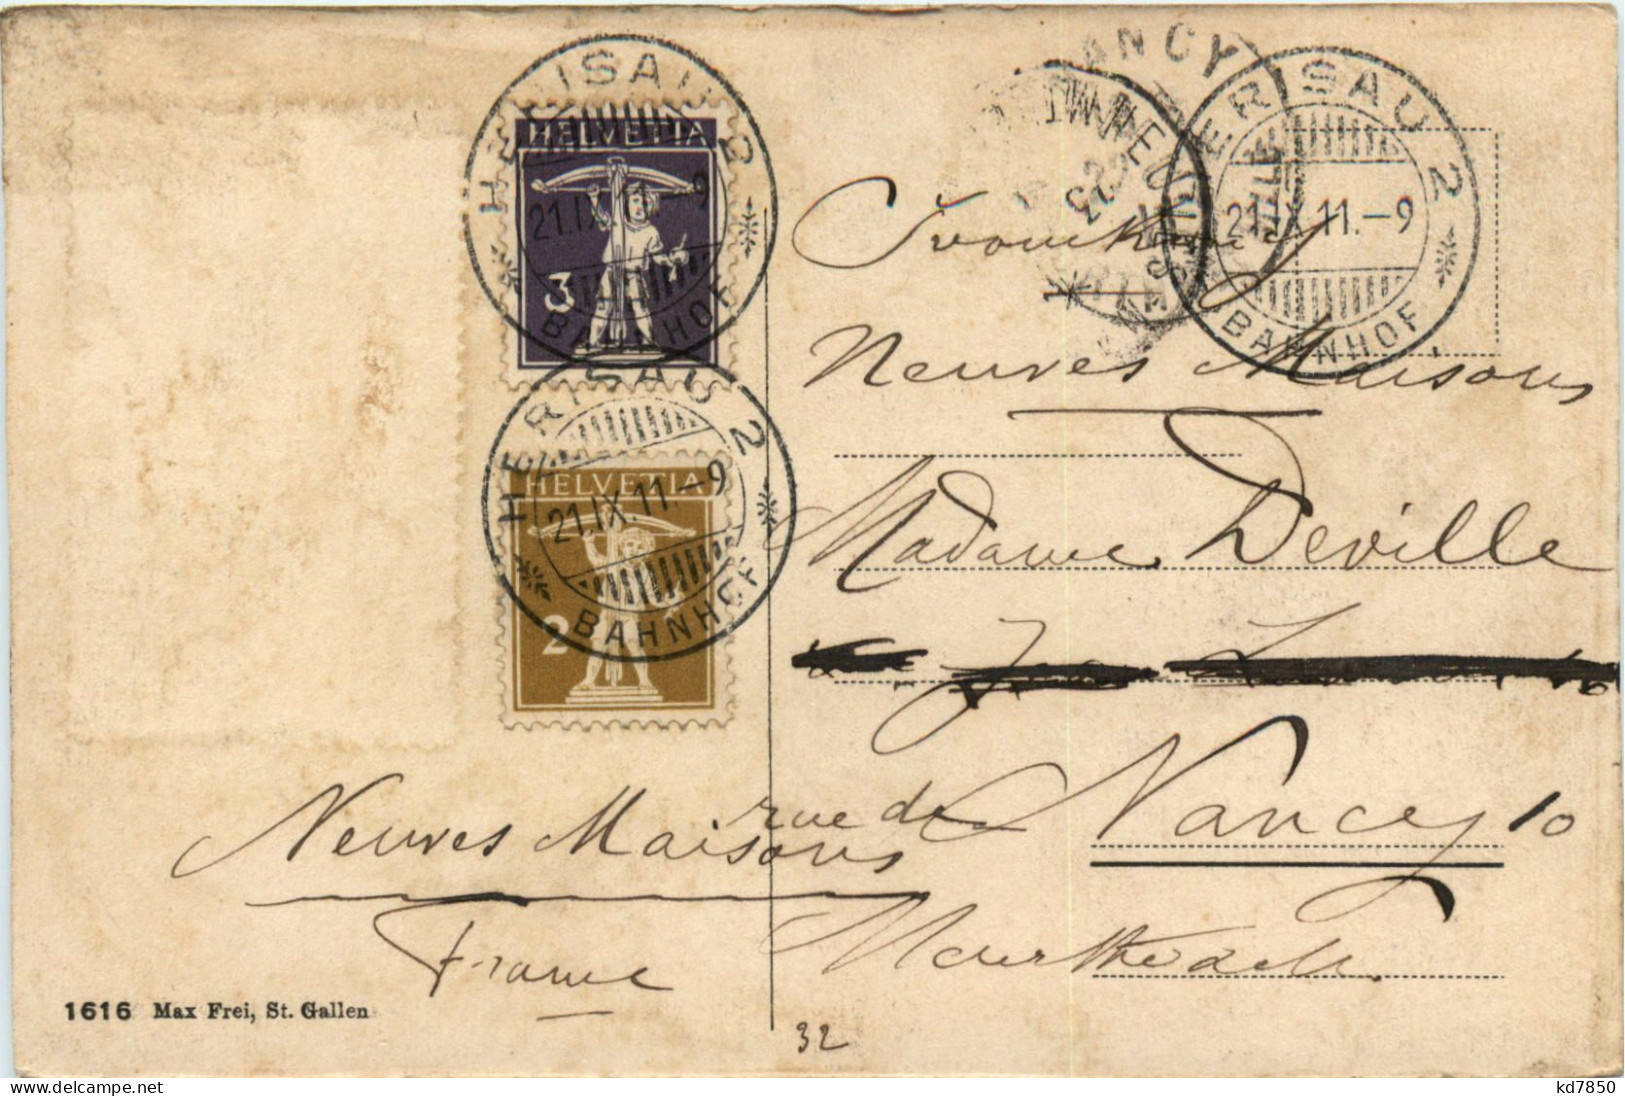 HERISAU 2
21.IX.11.–9
BAHNHOF
HELVETIA
3
HERISAU 2
21.IX.11.–9
BAHNHOF
HELVETIA
2
NANCY
23
HERISAU 2
21.IX.11.–9
BAHNHOF
Neuves Maisons
Madame Deville
Nancy 10
rue de
Neuves Maisons
France
Meurthe
1616 Max Frei, St. Gallen
32
kd7850